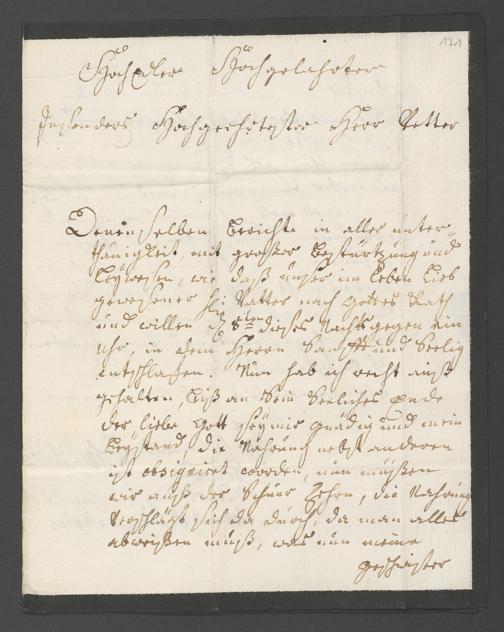 171
HochEdler Hochgelahrter
Insonders Hochgeehrtester Herr Vetter
Denenselben berichte in aller unter-
thänigkeit, mit großer bestürtzung und
Leydwesen, wie daß unser im Leben Lieb
gewesener Vatter nach Gottes Rath
und willen d 8ten dieses Nachts gegen ein
Uhr, in dem Herrn Sanfft und Seelig
entschlaffen. Nun hab ich recht auß
gehalten biß an Sein Seeliches Ende
der liebe Gott sey mir gnädig und mein
beystand, die Nahrung nebst anderen
ist obsigniret worden, nun müßen
wir auß der Zehren, die Nahrung
verschlägt sich da durch, da man alles
abweißen muß, was nun meine
geschwister